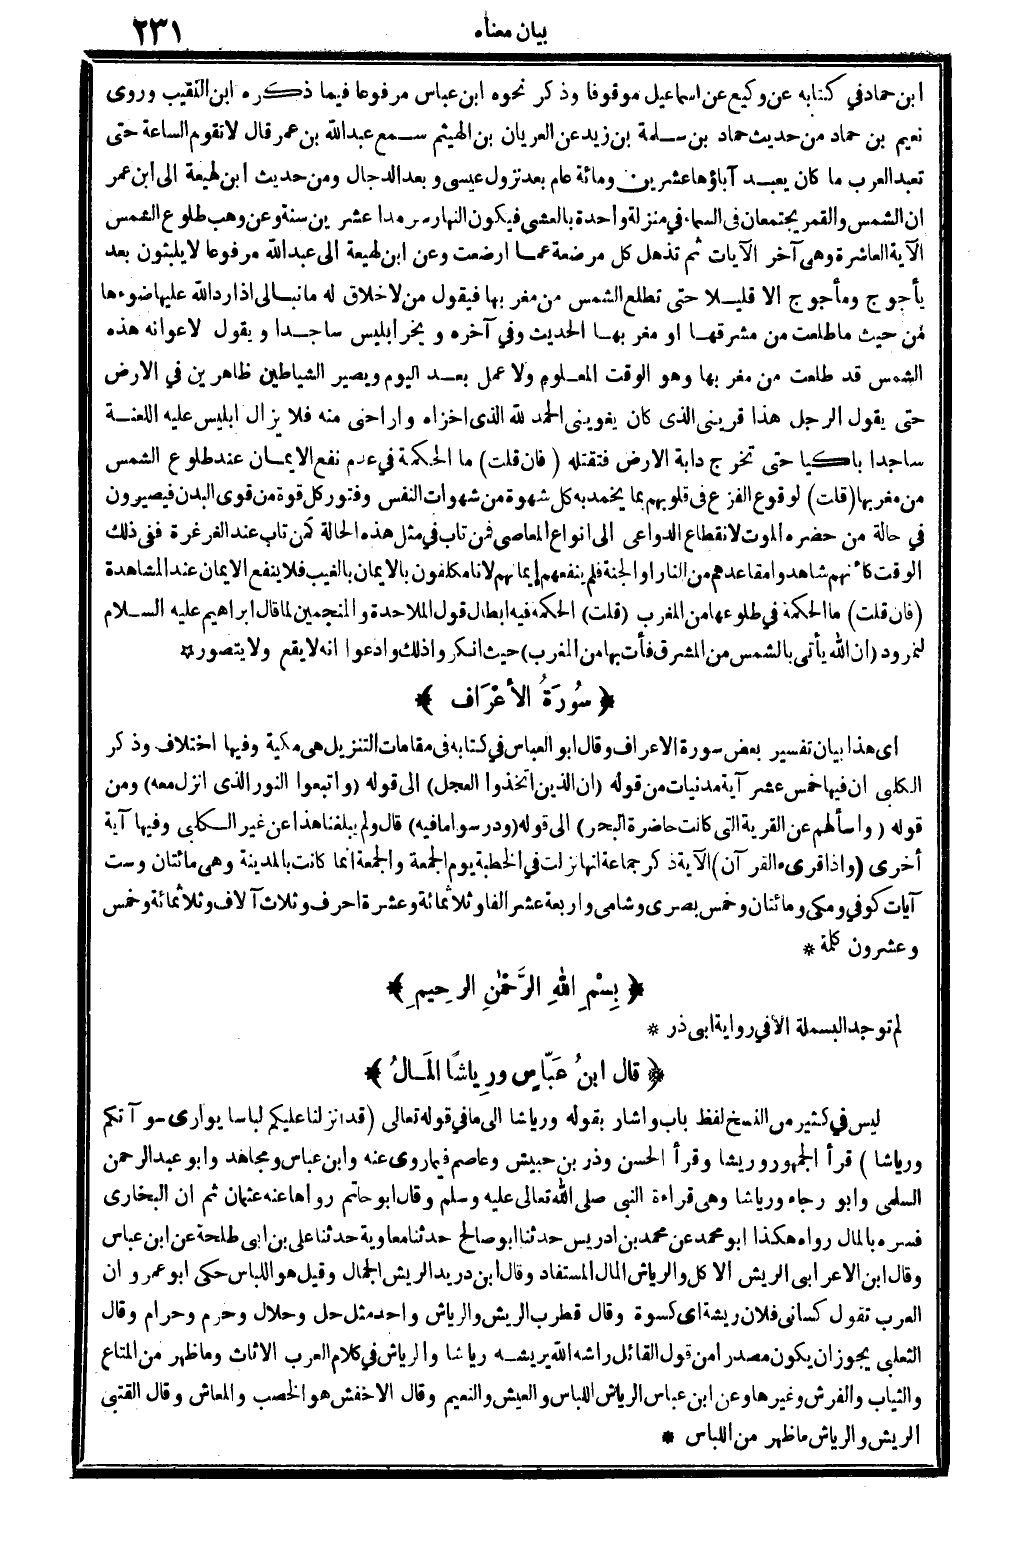 بيان معناه ٢٣١
ابن حماد في كتابه عن وكيع عن اسماعيل موقوفا وذكر نحوه ابن عباس مرفوعا فيما ذكره ابن النقيب وروى
نعيم بن حماد من حديث حماد بن سلمة بن زيد عن العريان بن الهيثم سمع عبدالله بن عمر قال لا تقوم الساعة حتى
تعبد العرب ما كان يعبد آباؤها عشرين ومائة عام بعد نزول عيسى وبعد الدجال ومن حديث ابن لهيعة الى ابن عمر
ان الشمس والقمر يجتمعان فى السماء في منزلة واحدة بالعشى فيكون النهار سرمدا عشرين سنة وعن وهب طلوع الشمس
الآية العاشرة وهى آخر الآيات ثم تذهل كل مرضعة عما ارضعت وعن ابن لهيعة الى عبدالله مرفوعا لا يلبثون بعد
يأجوج ومأجوج الا قليلا حتى تطلع الشمس من مغربها فيقول من لا خلاق له ما نبالى اذا رد الله عليها ضوءها
من حيث ما طلعت من مشرقها او مغربها الحديث وفي آخره ويخر ابليس ساجدا ويقول لاعوانه هذه
الشمس قد طلعت من مغربها وهو الوقت المعلوم ولا عمل بعد اليوم ويصير الشياطين ظاهرين في الارض
حتى يقول الرجل هذا قرينى الذى كان يغوينى الحمد لله الذى اخزاه واراحنى منه فلا يزال ابليس عليه اللعنة
ساجدا باكيا حتى تخرج دابة الارض فتقتله (فان قلت) ما الحكمة في عدم نفع الايمان عند طلوع الشمس
من مغربها (قلت) لوقوع الفزع فى قلوبهم بما يخمد به كل شهوة من شهوات النفس وفتور كل قوة من قوى البدن فيصيرون
في حالة من حضره الموت لانقطاع الدواعى الى انواع المعاصى فمن تاب في مثل هذه الحالة كمن تاب عند الغرغرة ففى ذلك
الوقت كأنهم شاهدوا مقاعدهم من النار او الجنة فلم ينفعهم إيمانهم لانا مكلفون بالايمان بالغيب فلا ينفع الايمان عند المشاهدة
(فان قلت) ما الحكمة في طلوعها من المغرب (قلت) الحكمه فيه ابطال قول الملاحدة والمنجمين لما قال ابراهيم عليه السلام
لنمرود (ان الله يأتى بالشمس من المشرق فأت بها من المغرب) حيث انكروا ذلك وادعوا انه لا يقع ولا يتصور *
﴿ سُورَةُ الأعْرَاف ﴾
اى هذا بيان تفسير بعض سورة الاعراف وقال ابو العباس في كتابه فى مقامات التنزيل هى مكية وفيها اختلاف وذكر
الكلبى ان فيها خمس عشر آية مدنيات من قوله (ان الذين اتخذوا العجل) الى قوله (واتبعوا النور الذى انزل معه) ومن
قوله (واسألهم عن القرية التى كانت حاضرة البحر) الى قوله (ودرسوا ما فيه) قال ولم يبلغنا هذا عن غير الكلبى وفيها آية
أخرى (واذا قرىء القرآن) الآية ذكر جماعة انها نزلت في الخطبة يوم الجمعة والجمعة انما كانت بالمدينة وهى مائتان وست
آيات كوفي ومكى ومائتان وخمس بصرى وشامى واربعة عشر الفا وثلاثمائة وعشرة احرف وثلاث آلاف وثلاثمائة وخمس
وعشرون كلمة *
﴿ بِسْمِ اللهِ الرَّحْمٰنِ الرحِيمِ ﴾
لم توجد البسملة الا في رواية ابى ذر *
﴿ قال ابنُ عَبَّاسٍ ورِياشًا المَالُ ﴾
ليس في كثير من النسخ لفظ باب واشار بقوله ورياشا الى ما في قوله تعالى (قد انزلنا عليكم لباسا يوارى سوآتكم
ورياشا) قرأ الجمهور وريشا وقرأ الحسن وذر بن حبيش وعاصم فيما روى عنه وابن عباس ومجاهد وابو عبدالرحمن
السلمى وابو رجاء ورياشا وهى قراءة النبى صلى الله تعالى عليه وسلم وقال ابو حاتم رواها عنه عثمان ثم ان البخارى
فسره بالمال رواه هكذا ابو محمد عن محمد بن ادريس حدثنا ابو صالح حدثنا معاوية حدثنا على بن ابى طلحة عن ابن عباس
وقال ابن الاعرابى الريش الاكل والرياش المال المستفاد وقال ابن دريد الريش الجمال وقيل هو اللباس حكى ابو عمرو ان
العرب تقول كسانى فلان ريشة اى كسوة وقال قطرب الريش والرياش واحد مثل حل وحلال وحرم وحرام وقال
الثعلبى يجوز ان يكون مصدرا من قول القائل راشه الله يريشه رياشا والرياش في كلام العرب الاثاث وما ظهر من المتاع
والثياب والفرش وغيرها وعن ابن عباس الرياش اللباس والعيش والنعيم وقال الاخفش هو الخصب والمعاش وقال القتبى
الريش والرياش ما ظهر من اللباس *